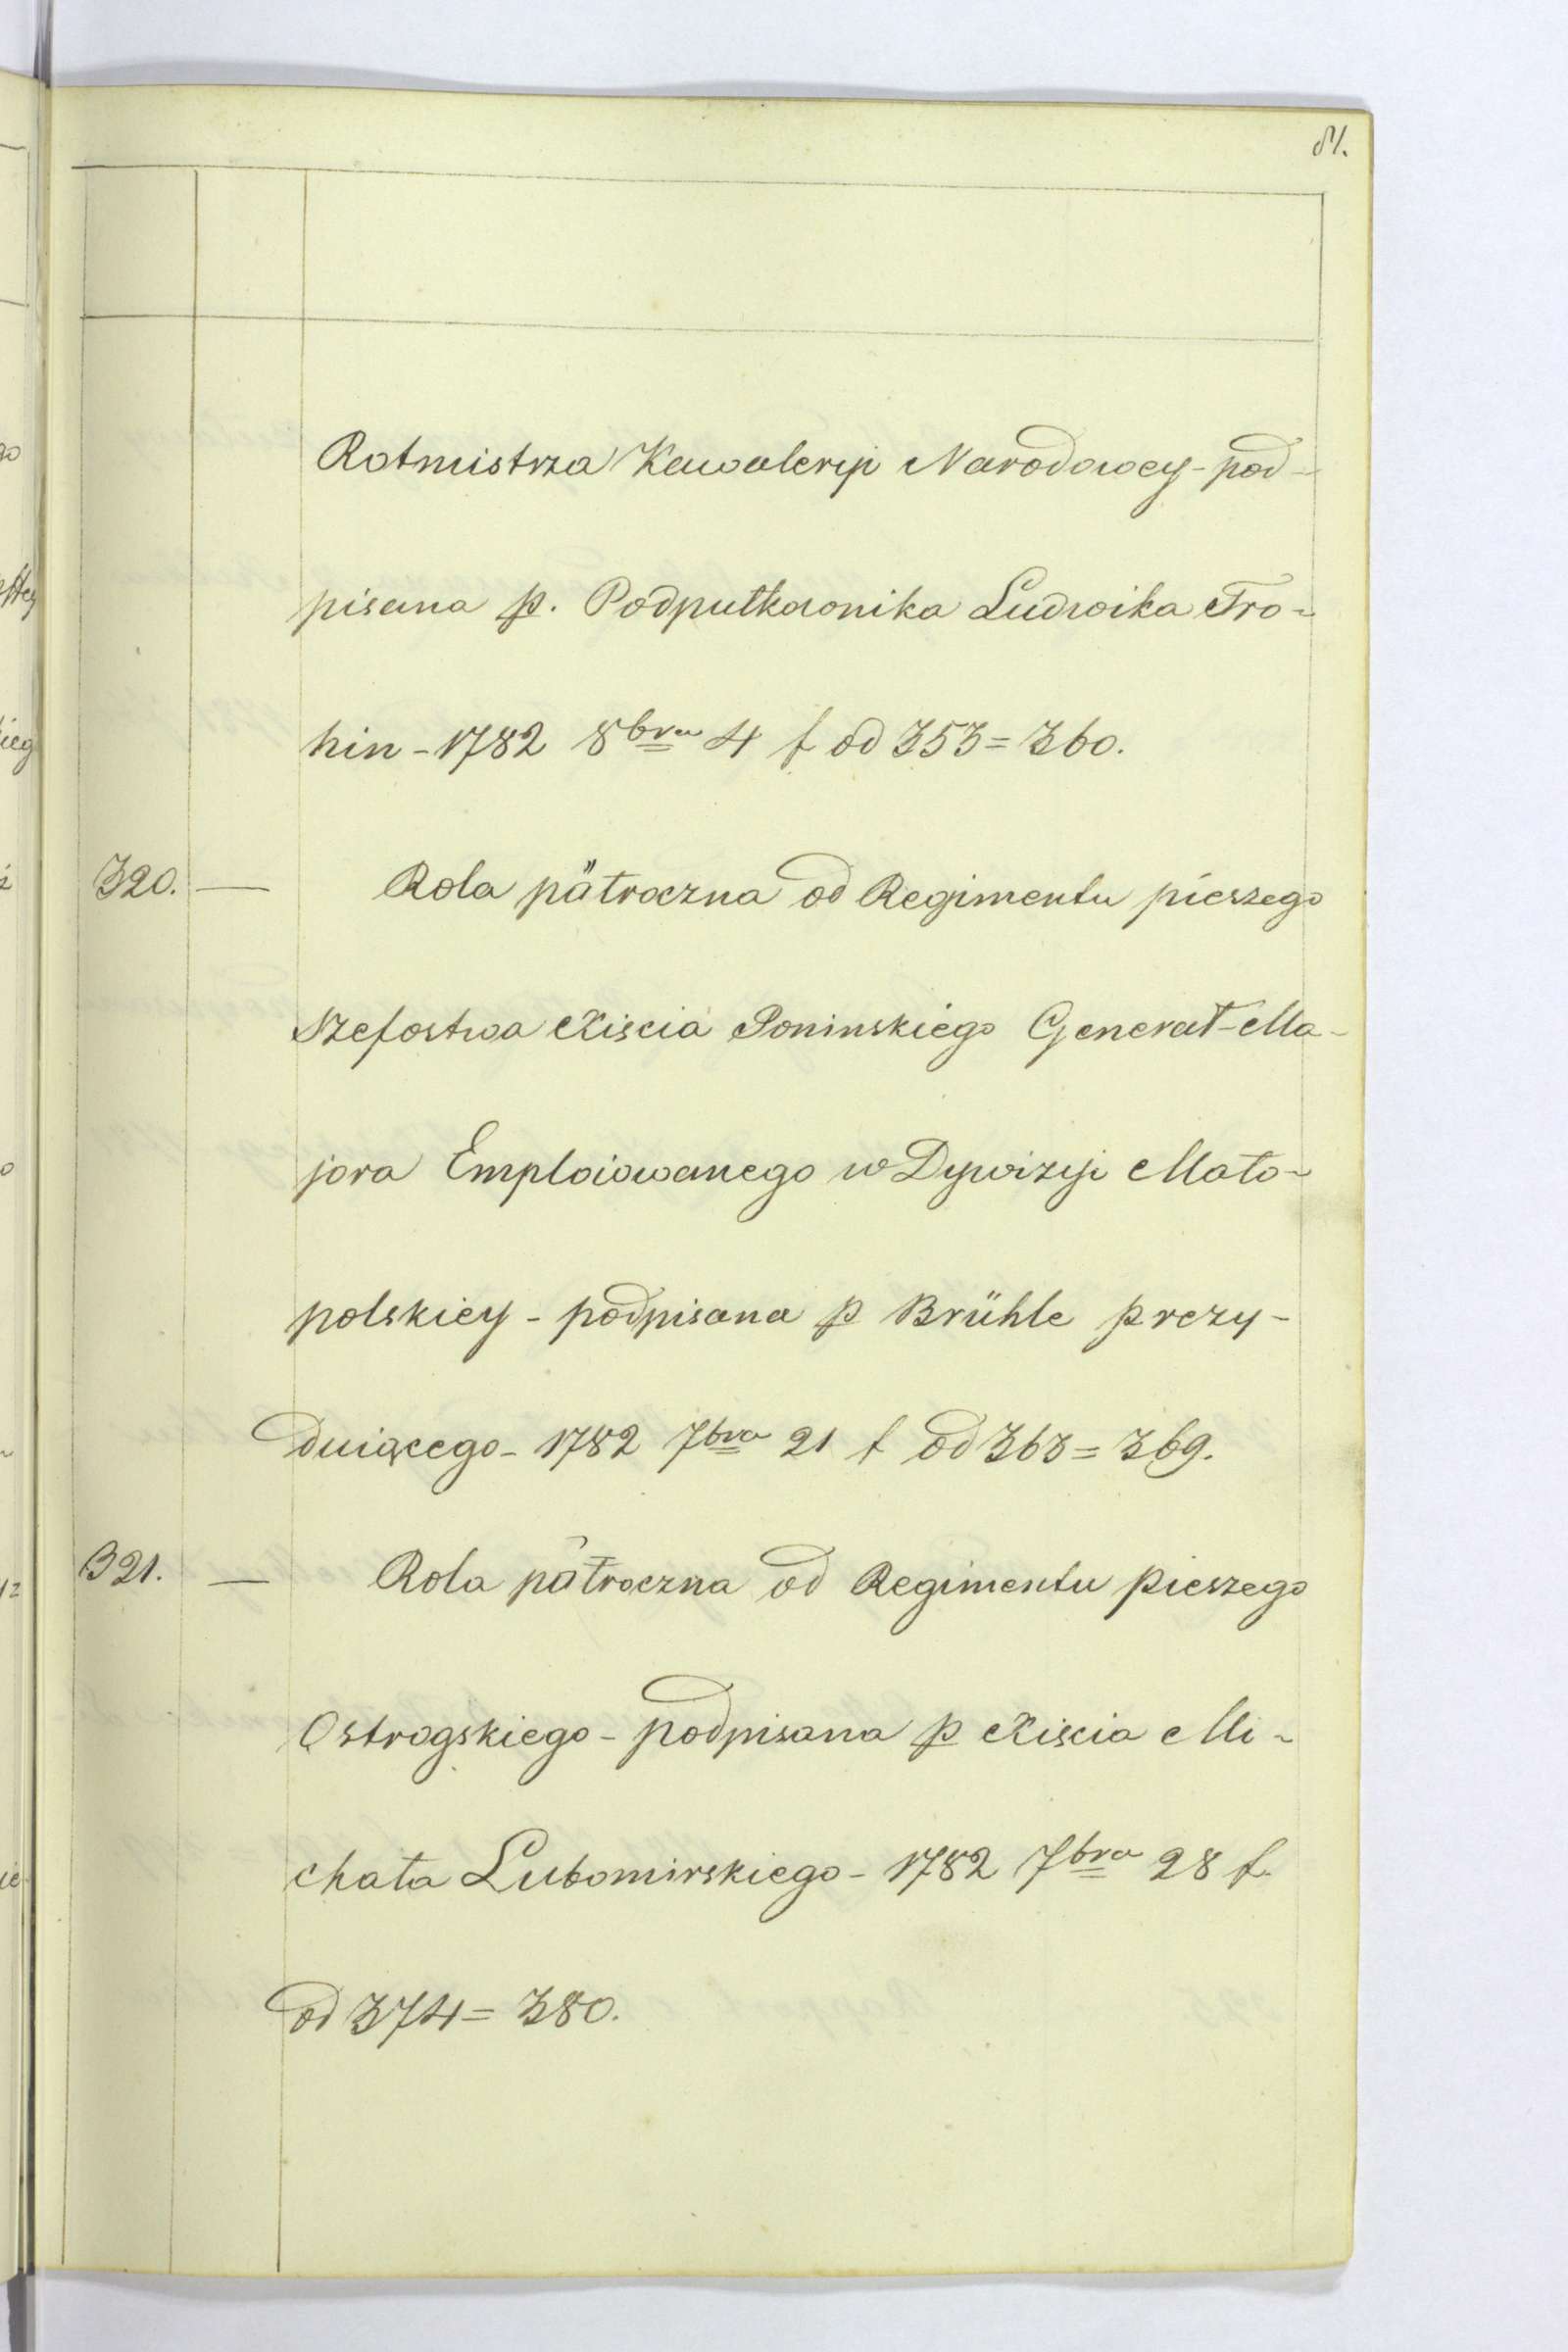 81.
Rotmistrza Kawaleryi Narodowey - pod-
pisana p. Podpułkownika Ludwika Tro-
hin - 1782 8bra 4 f od 353 = 360.
320. — Rola półroczna od Regimentu pieszego
Szefostwa Xiścia Poninskiego Generał-Ma-
jora Emploiowanego w Dywizyi Mało-
polskiey - podpisana p Brühle prezy-
duiącego - 1782 7bra 21 f od 363 = 369.
321. — Rola półroczna od Regimentu pieszego
Ostrogskiego - podpisana p Xiścia Mi-
chała Lubomirskiego - 1782 7bra 28 f.
od 374 = 380.